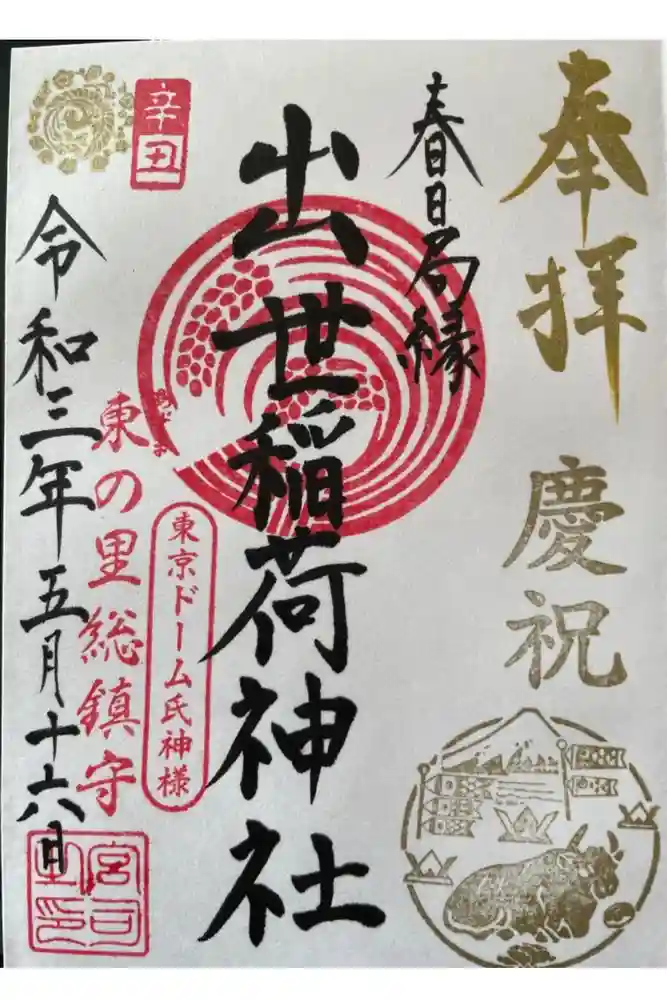 奉拝
慶祝
春日局縁
出世稲荷神社
東京ドーム氏神様
東の里総鎮守
辛丑
令和三年五月十六日
宮司之印